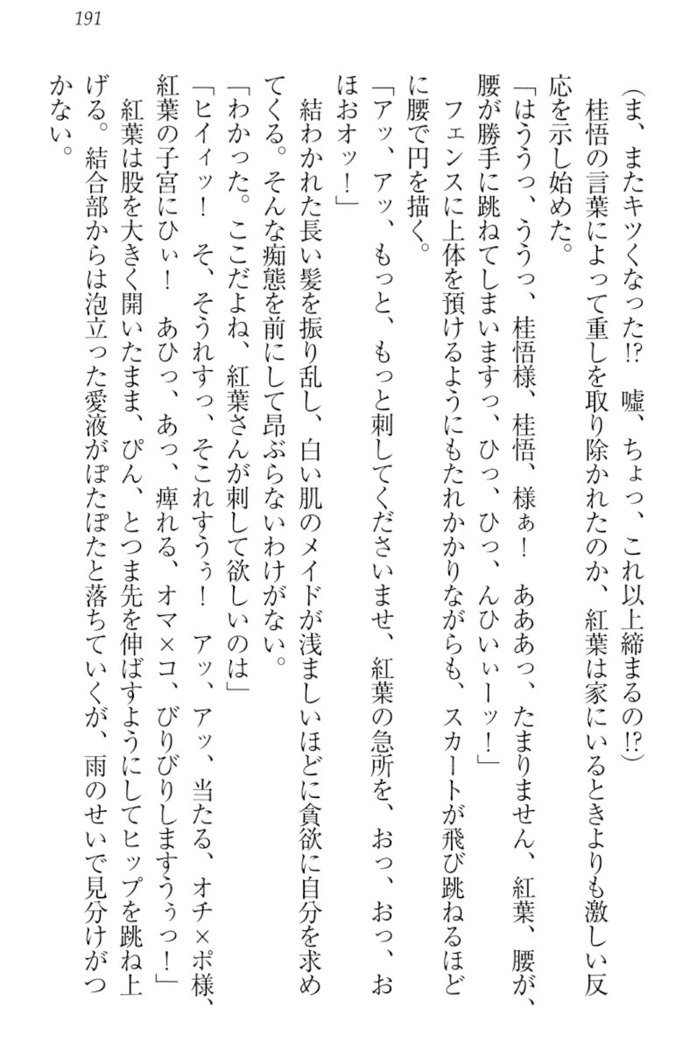 191
(ま、またキツくなった!?　嘘、ちょっ、これ以上締まるの!?)
　桂悟の言葉によって重しを取り除かれたのか、紅葉は家にいるときよりも激しい反
応を示し始めた。
「はううっ、ううっ、桂悟様、桂悟、様ぁ！　あああっ、たまりません、紅葉、腰が、
腰が勝手に跳ねてしまいますっ、ひっ、ひっ、んひいぃーッ！」
　フェンスに上体を預けるようにもたれかかりながらも、スカートが飛び跳ねるほど
に腰で円を描く。
「アッ、アッ、もっと、もっと刺してくださいませ、紅葉の急所を、おっ、おっ、お
ほおオッ！」
　結わかれた長い髪を振り乱し、白い肌のメイドが浅ましいほどに貪欲に自分を求め
てくる。そんな痴態を前にして昂ぶらないわけがない。
「わかった。ここだよね、紅葉さんが刺して欲しいのは」
「ヒイィッ！　そ、そうれすっ、そこれすうぅ！　アッ、アッ、当たる、オチ×ポ様、
紅葉の子宮にひぃ！　あひっ、あっ、痺れる、オマ×コ、びりびりしますうぅっ！」
　紅葉は股を大きく開いたまま、ぴん、とつま先を伸ばすようにしてヒップを跳ね上
げる。結合部からは泡立った愛液がぽたぽたと落ちていくが、雨のせいで見分けがつ
かない。